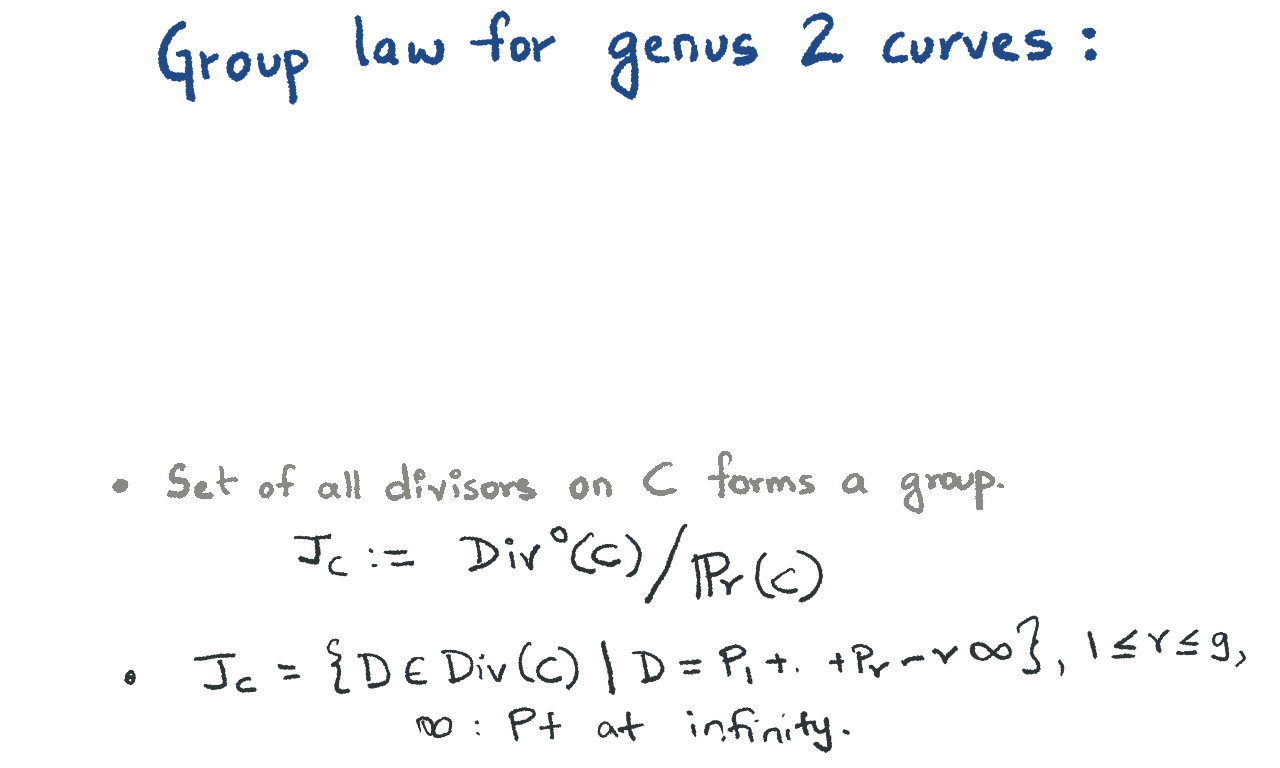 Group law for genus 2 curves :
• Set of all divisors on C forms a group.
J_C := Div°(C)/Pr(C)
• J_C = {D ∈ Div(C) | D = P_1 + . + P_r - r∞}, 1 ≤ r ≤ g,
∞ : Pt at infinity.